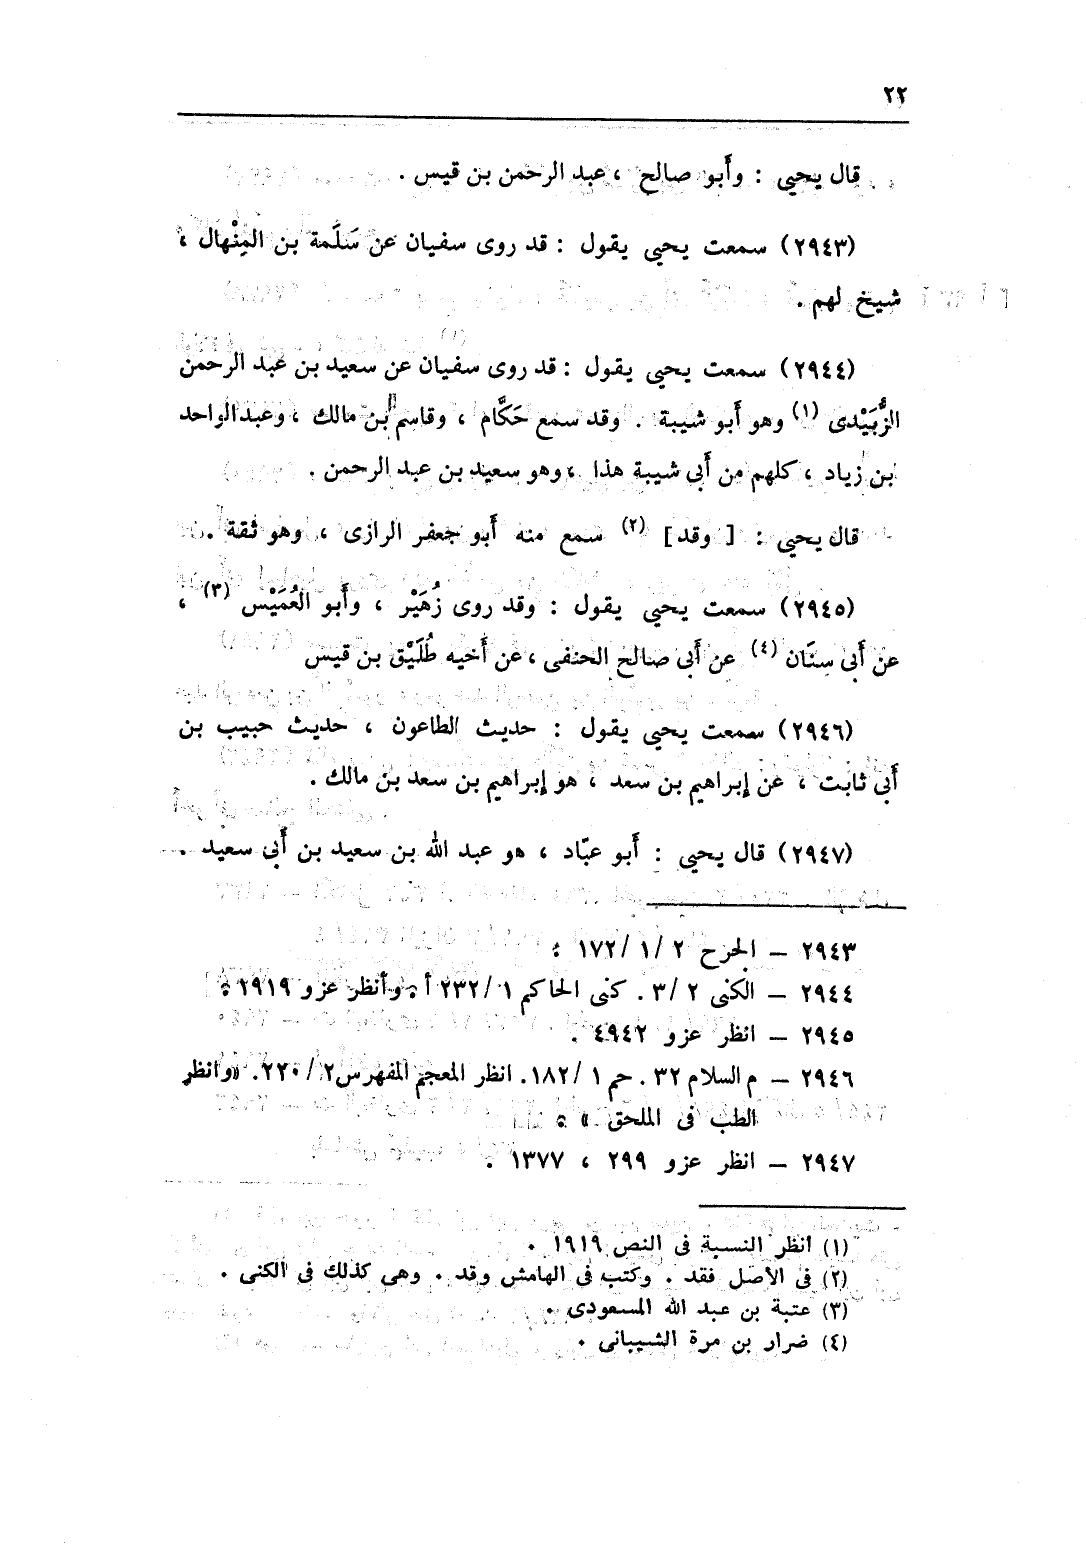 ٢٢
قال يحيى : وأَبو صالح ، عبد الرحمن بن قيس .
(٢٩٤٣) سمعت يحيى يقول : قد روى سفيان عن سَلَمة بن المِنْهال ،
شيخ لهم .
(٢٩٤٤) سمعت يحيى يقول : قد روى سفيان عن سعيد بن عبد الرحمن
الزُّبَيْدى (١) وهو أَبو شيبة . وقد سمع حَكَّام ، وقاسم بن مالك ، وعبد الواحد
بن زياد ، كلهم من أَبى شيبة هذا ، وهو سعيد بن عبد الرحمن .
قال يحيى : [ وقد] (٢) سمع منه أَبو جعفر الرازى ، وهو ثقة .
(٢٩٤٥) سمعت يحيى يقول : وقد روى زُهَيْر ، وأَبو العُمَيْس (٣) ،
عن أَبى سِنَان (٤) عن أَبى صالح الحنفى ، عن أَخيه طُلَيْق بن قيس
(٢٩٤٦) سمعت يحيى يقول : حديث الطاعون ، حديث حبيب بن
أَبى ثابت ، عن إبراهيم بن سعد ، هو إبراهيم بن سعد بن مالك .
(٢٩٤٧) قال يحيى : أَبو عبّاد ، هو عبد الله بن سعيد بن أَبى سعيد .
٢٩٤٣ – الجرح ٢ /١ /١٧٢ .
٢٩٤٤ – الكنى ٢ /٣ . كنى الحاكم ١ /٢٣٢ أ . وأنظر عزو ٢٩١٩ .
٢٩٤٥ – انظر عزو ٤٩٤٢ .
٢٩٤٦ – م السلام ٣٢ . حم ١ /١٨٢. انظر المعجم المفهرس ٢ /٢٢٠. «وانظر
الطب فى الملحق » .
٢٩٤٧ – انظر عزو ٢٩٩ ، ١٣٧٧ .
(١) انظر النسبة فى النص ١٩١٩ .
(٢) فى الأصل فقد . وكتب فى الهامش وقد . وهى كذلك فى الكنى .
(٣) عتبة بن عبد الله المسعودى .
(٤) ضرار بن مرة الشيبانى .